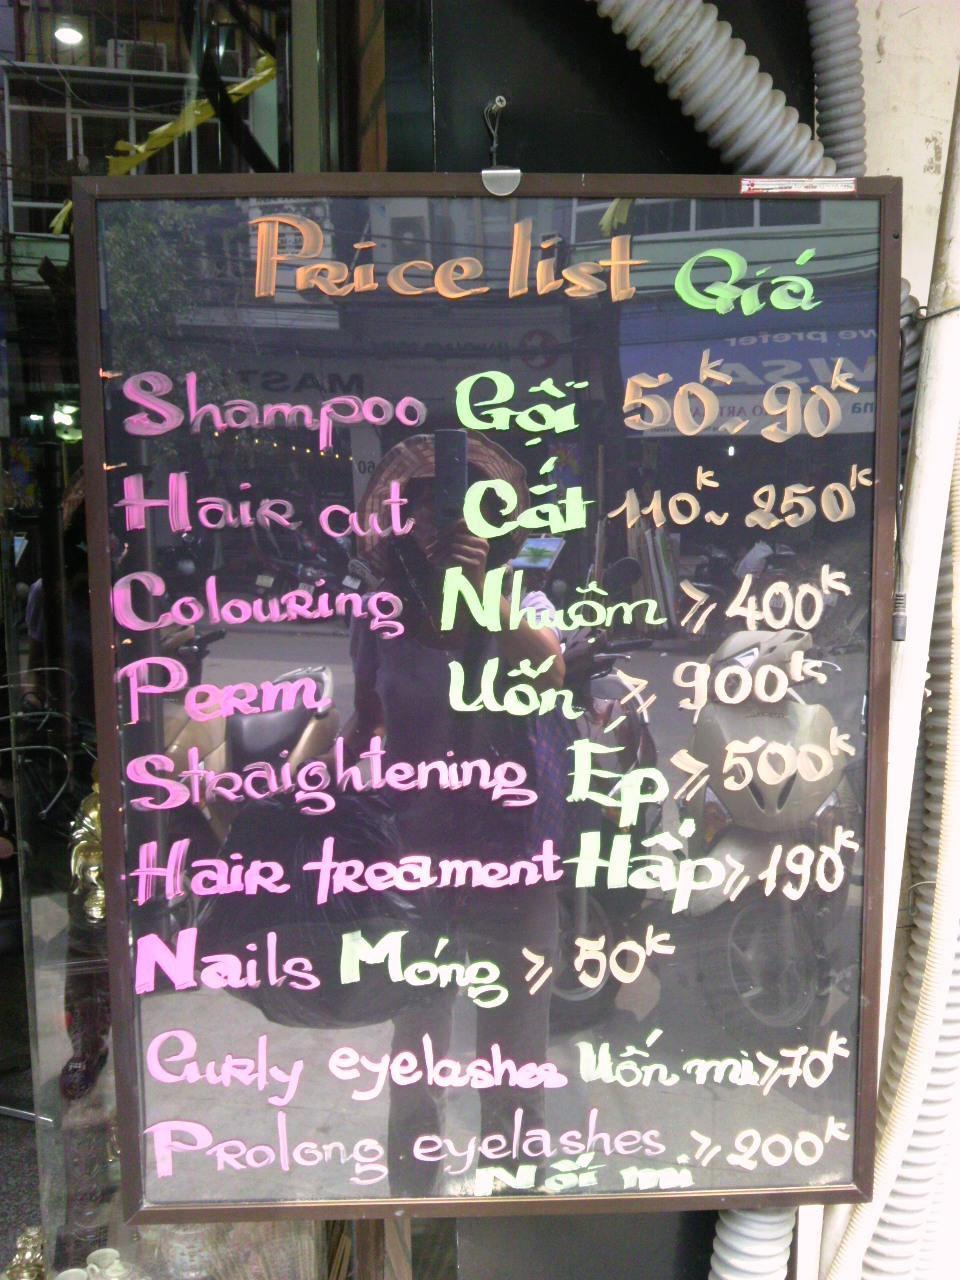 Price list Giá
Shampoo Gội 50k ~ 90k
Hair cut Cắt 110k ~ 250k
Colouring Nhuộm ≥ 400k
Perm Uốn ≥ 900k
Straightening Ép ≥ 500k
Hair treament Hấp ≥ 190k
Nails Móng ≥ 50k
Curly eyelashes Uốn mi ≥ 70k
Prolong eyelashes ≥ 200k
Nối mi
we prefer
VISA
MAST